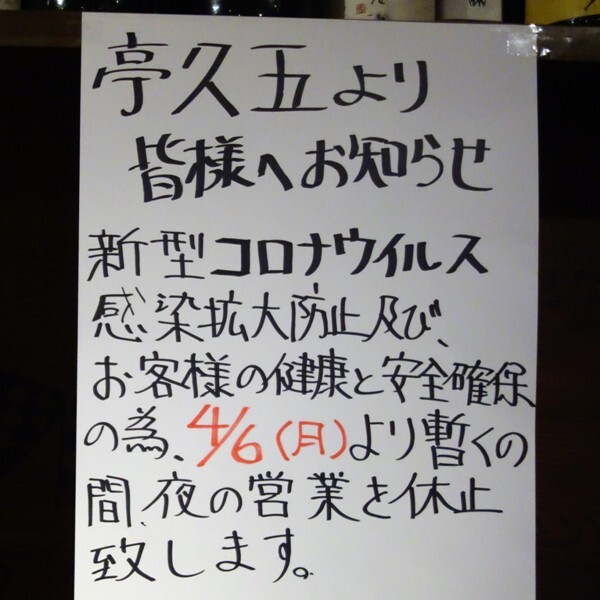 亭久五より
皆様へお知らせ
新型コロナウイルス
感染拡大防止及び、
お客様の健康と安全確保
の為、4/6(月)より暫くの
間、夜の営業を休止
致します。